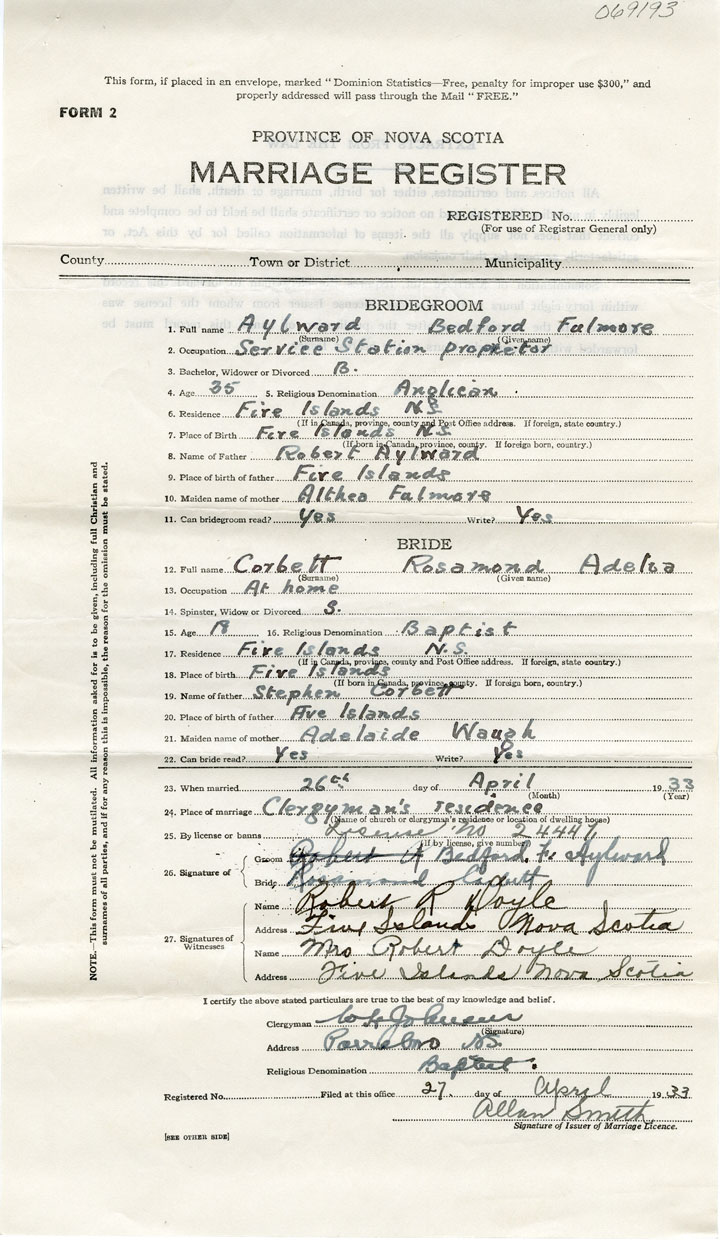 069193
This form, if placed in an envelope, marked " Dominion Statistics—Free, penalty for improper use $300," and
properly addressed will pass through the Mail " FREE."
FORM 2
PROVINCE OF NOVA SCOTIA
MARRIAGE REGISTER
REGISTERED No.
(For use of Registrar General only)
County Town or District Municipality
BRIDEGROOM
1. Full name Aylward Bedford Fulmore
(Surname) (Given name)
2. Occupation Service Station propietor
3. Bachelor, Widower or Divorced B.
4. Age 35 5. Religious Denomination Anglican
6. Residence Five Islands N.S.
(If in Canada, province, county and Post Office address. If foreign, state country.)
7. Place of Birth Five Islands N.S.
(If born in Canada, province, county. If foreign born, country.)
8. Name of Father Robert Aylward
9. Place of birth of father Five Islands
10. Maiden name of mother Althea Fulmore
11. Can bridegroom read? Yes Write? Yes
BRIDE
12. Full name Corbett Rosamond Adelva
(Surname) (Given name)
13. Occupation At home
14. Spinster, Widow or Divorced S.
15. Age 18 16. Religious Denomination Baptist
17. Residence Five Islands N.S.
(If in Canada, province, county and Post Office address. If foreign, state country.)
18. Place of birth Five Islands
(If born in Canada, province, county. If foreign born, country.)
19. Name of father Stephen Corbett
20. Place of birth of father Five Islands
21. Maiden name of mother Adelaide Waugh
22. Can bride read? Yes Write? Yes
23. When married 26th day of April 1933
(Month) (Year)
24. Place of marriage Clergyman's residence
(Name of church or clergyman's residence or location of dwelling house)
25. By license or banns License No 24447
(If by license, give number)
26. Signature of
Groom Bedford F. Aylward
Bride Rosamond Corbett
27. Signatures of Witnesses
Name Robert R Doyle
Address Five Islands Nova Scotia
Name Mrs Robert Doyle
Address Five Islands Nova Scotia
I certify the above stated particulars are true to the best of my knowledge and belief.
Clergyman
(Signature)
Address Parrsboro N.S.
Religious Denomination Baptist.
Registered No. Filed at this office 27. day of April 1933
Allan Smith
Signature of Issuer of Marriage Licence.
[SEE OTHER SIDE]
NOTE.—This form must not be mutilated. All information asked for is to be given, including full Christian and
surnames of all parties, and if for any reason this is impossible, the reason for the omission must be stated.